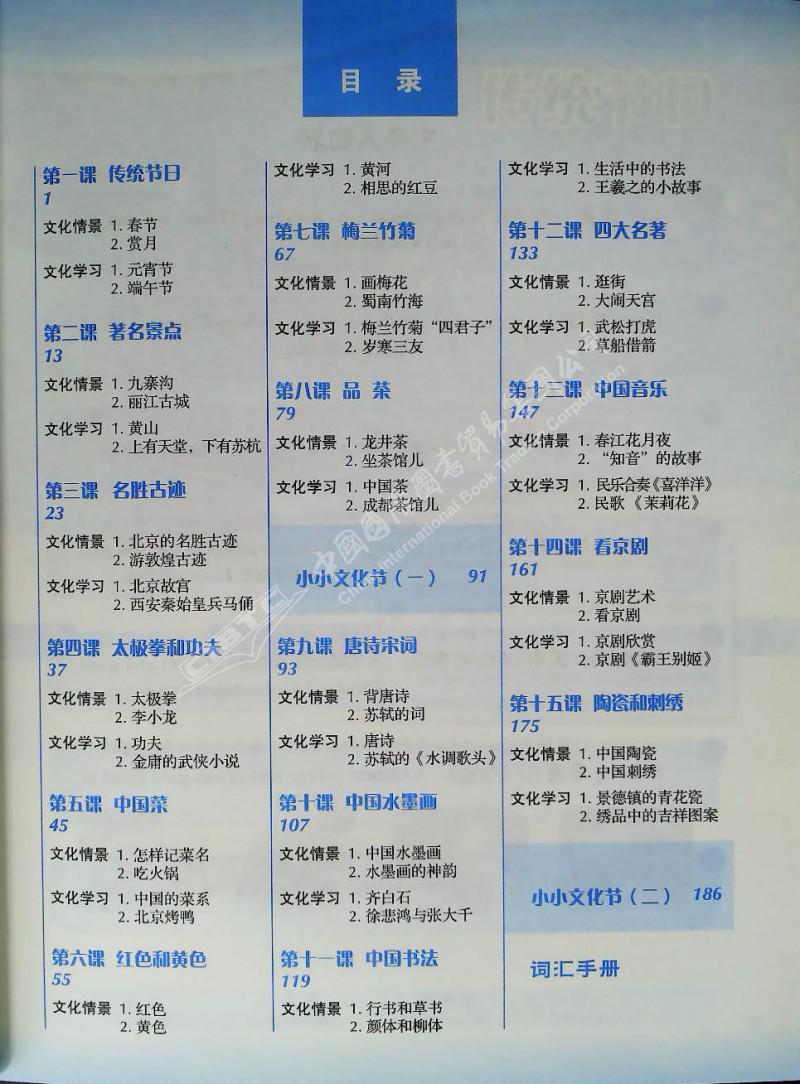 目 录
第一课 传统节日
1
文化情景 1. 春节
2. 赏月
文化学习 1. 元宵节
2. 端午节
第二课 著名景点
13
文化情景 1. 九寨沟
2. 丽江古城
文化学习 1. 黄山
2. 上有天堂，下有苏杭
第三课 名胜古迹
23
文化情景 1. 北京的名胜古迹
2. 游敦煌古迹
文化学习 1. 北京故宫
2. 西安秦始皇兵马俑
第四课 太极拳和功夫
37
文化情景 1. 太极拳
2. 李小龙
文化学习 1. 功夫
2. 金庸的武侠小说
第五课 中国菜
45
文化情景 1. 怎样记菜名
2. 吃火锅
文化学习 1. 中国的菜系
2. 北京烤鸭
第六课 红色和黄色
55
文化情景 1. 红色
2. 黄色
文化学习 1. 黄河
2. 相思的红豆
第七课 梅兰竹菊
67
文化情景 1. 画梅花
2. 蜀南竹海
文化学习 1. 梅兰竹菊“四君子”
2. 岁寒三友
第八课 品 茶
79
文化情景 1. 龙井茶
2. 坐茶馆儿
文化学习 1. 中国茶
2. 成都茶馆儿
小小文化节（一） 91
第九课 唐诗宋词
93
文化情景 1. 背唐诗
2. 苏轼的词
文化学习 1. 唐诗
2. 苏轼的《水调歌头》
第十课 中国水墨画
107
文化情景 1. 中国水墨画
2. 水墨画的神韵
文化学习 1. 齐白石
2. 徐悲鸿与张大千
第十一课 中国书法
119
文化情景 1. 行书和草书
2. 颜体和柳体
文化学习 1. 生活中的书法
2. 王羲之的小故事
第十二课 四大名著
133
文化情景 1. 逛街
2. 大闹天宫
文化学习 1. 武松打虎
2. 草船借箭
第十三课 中国音乐
147
文化情景 1. 春江花月夜
2. “知音”的故事
文化学习 1. 民乐合奏《喜洋洋》
2. 民歌《茉莉花》
第十四课 看京剧
161
文化情景 1. 京剧艺术
2. 看京剧
文化学习 1. 京剧欣赏
2. 京剧《霸王别姬》
第十五课 陶瓷和刺绣
175
文化情景 1. 中国陶瓷
2. 中国刺绣
文化学习 1. 景德镇的青花瓷
2. 绣品中的吉祥图案
小小文化节（二） 186
词汇手册
CIBTC 中國國際圖書貿易集團公司
China International Book Trading Corporation